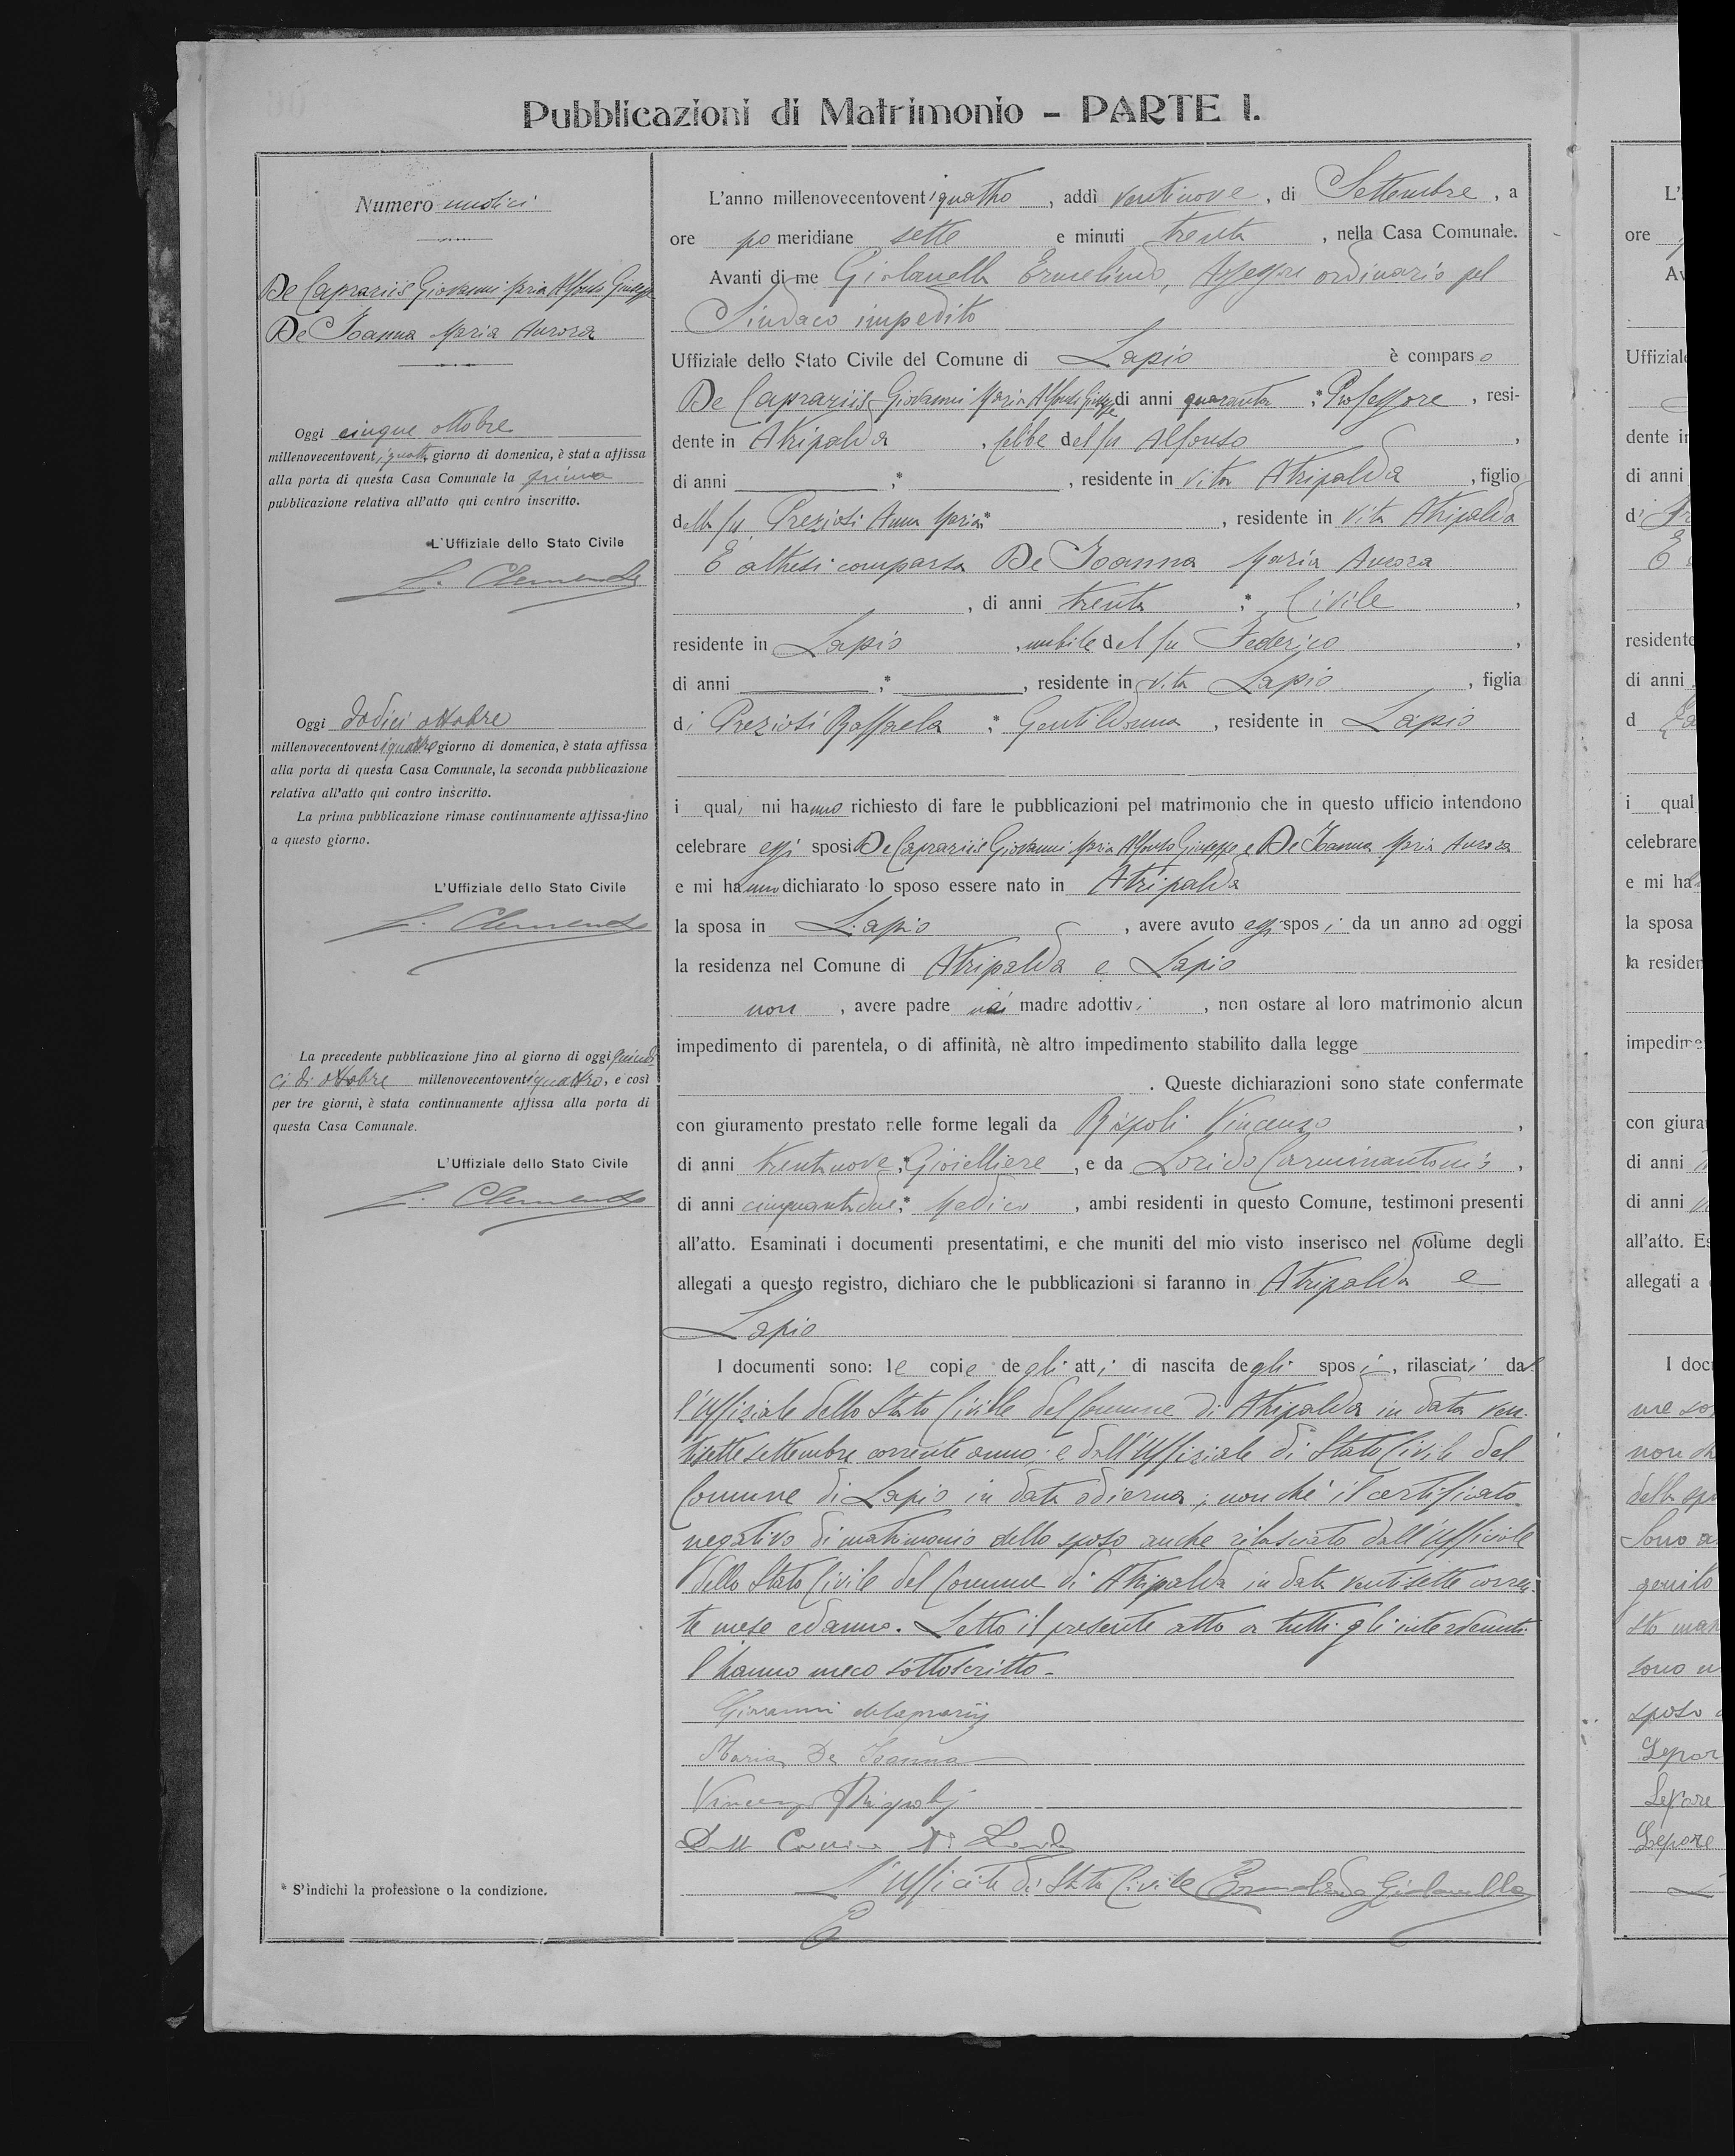 Pubblicazioni di Matrimonio - PARTE I.
Numero undici
De Caprariis Giovanni Maria Alfonso Giuseppe
De Ioanna Maria Aurora
Oggi cinque ottobre
millenovecentoventiquattro giorno di domenica, è stata affissa
alla porta di questa Casa Comunale la prima
pubblicazione relativa all'atto qui contro inscritto.
L'Uffiziale dello Stato Civile
Oggi dodici ottobre
millenovecentoventiquattro giorno di domenica, è stata affissa
alla porta di questa Casa Comunale, la seconda pubblicazione
relativa all'atto qui contro inscritto.
La prima pubblicazione rimase continuamente affissa fino
a questo giorno.
L'Uffiziale dello Stato Civile
La precedente pubblicazione fino al giorno di oggi quindi-
ci di ottobre millenovecentoventiquattro, e così
per tre giorni, è stata continuamente affissa alla porta di
questa Casa Comunale.
L'Uffiziale dello Stato Civile
* S'indichi la professione o la condizione.
L'anno millenovecentoventiquattro, addì ventinove, di Settembre, a
ore pomeridiane sette e minuti trenta, nella Casa Comunale.
Avanti di me Giolanella Ermelindo, Assessore ordinario pel
Sindaco impedito
Uffiziale dello Stato Civile del Comune di Lapio è comparso
De Caprariis Giovanni Maria Alfonso Giuseppe di anni quaranta * Professore, resi-
dente in Atripalda, celibe del fu Alfonso,
di anni , * , residente in vita Atripalda, figlio
della fu Preziosi Anna Maria * , residente in vita Atripalda
È altresì comparsa De Ioanna Maria Aurora
, di anni trenta * Civile,
residente in Lapio, nubile del fu Federico,
di anni , * , residente in vita Lapio, figlia
di Preziosi Raffaela * Gentildonna, residente in Lapio
i quali mi hanno richiesto di fare le pubblicazioni pel matrimonio che in questo ufficio intendono
celebrare essi sposi De Caprariis Giovanni Maria Alfonso Giuseppe e De Ioanna Maria Aurora
e mi hanno dichiarato lo sposo essere nato in Atripalda
la sposa in Lapio, avere avuto essi sposi da un anno ad oggi
la residenza nel Comune di Atripalda e Lapio
non, avere padre nè madre adottivi, non ostare al loro matrimonio alcun
impedimento di parentela, o di affinità, nè altro impedimento stabilito dalla legge
. Queste dichiarazioni sono state confermate
con giuramento prestato nelle forme legali da Rispoli Vincenzo,
di anni trentanove, * Gioielliere, e da Lorido Carminantonio,
di anni cinquantadue, * Medico, ambi residenti in questo Comune, testimoni presenti
all'atto. Esaminati i documenti presentatimi, e che muniti del mio visto inserisco nel volume degli
allegati a questo registro, dichiaro che le pubblicazioni si faranno in Atripalda e
Lapio
I documenti sono: le copie degli atti di nascita degli sposi, rilasciati dal-
l'Uffiziale dello Stato Civile del Comune di Atripalda in data ven-
tisette settembre corrente anno, e dall'Uffiziale di Stato Civile del
Comune di Lapio in data odierna; non chè il certificato
negativo di matrimonio dello sposo anche rilasciato dall'Ufficiale
dello Stato Civile del Comune di Atripalda in data ventisette corren-
te mese ed anno. Letto il presente atto a tutti gli intervenuti
l'hanno meco sottoscritto.
Giovanni deCaprariis
Maria De Ioanna
Vincenzo Rispoli
L'Ufficiale di Stato Civile Ermelindo Giolanella